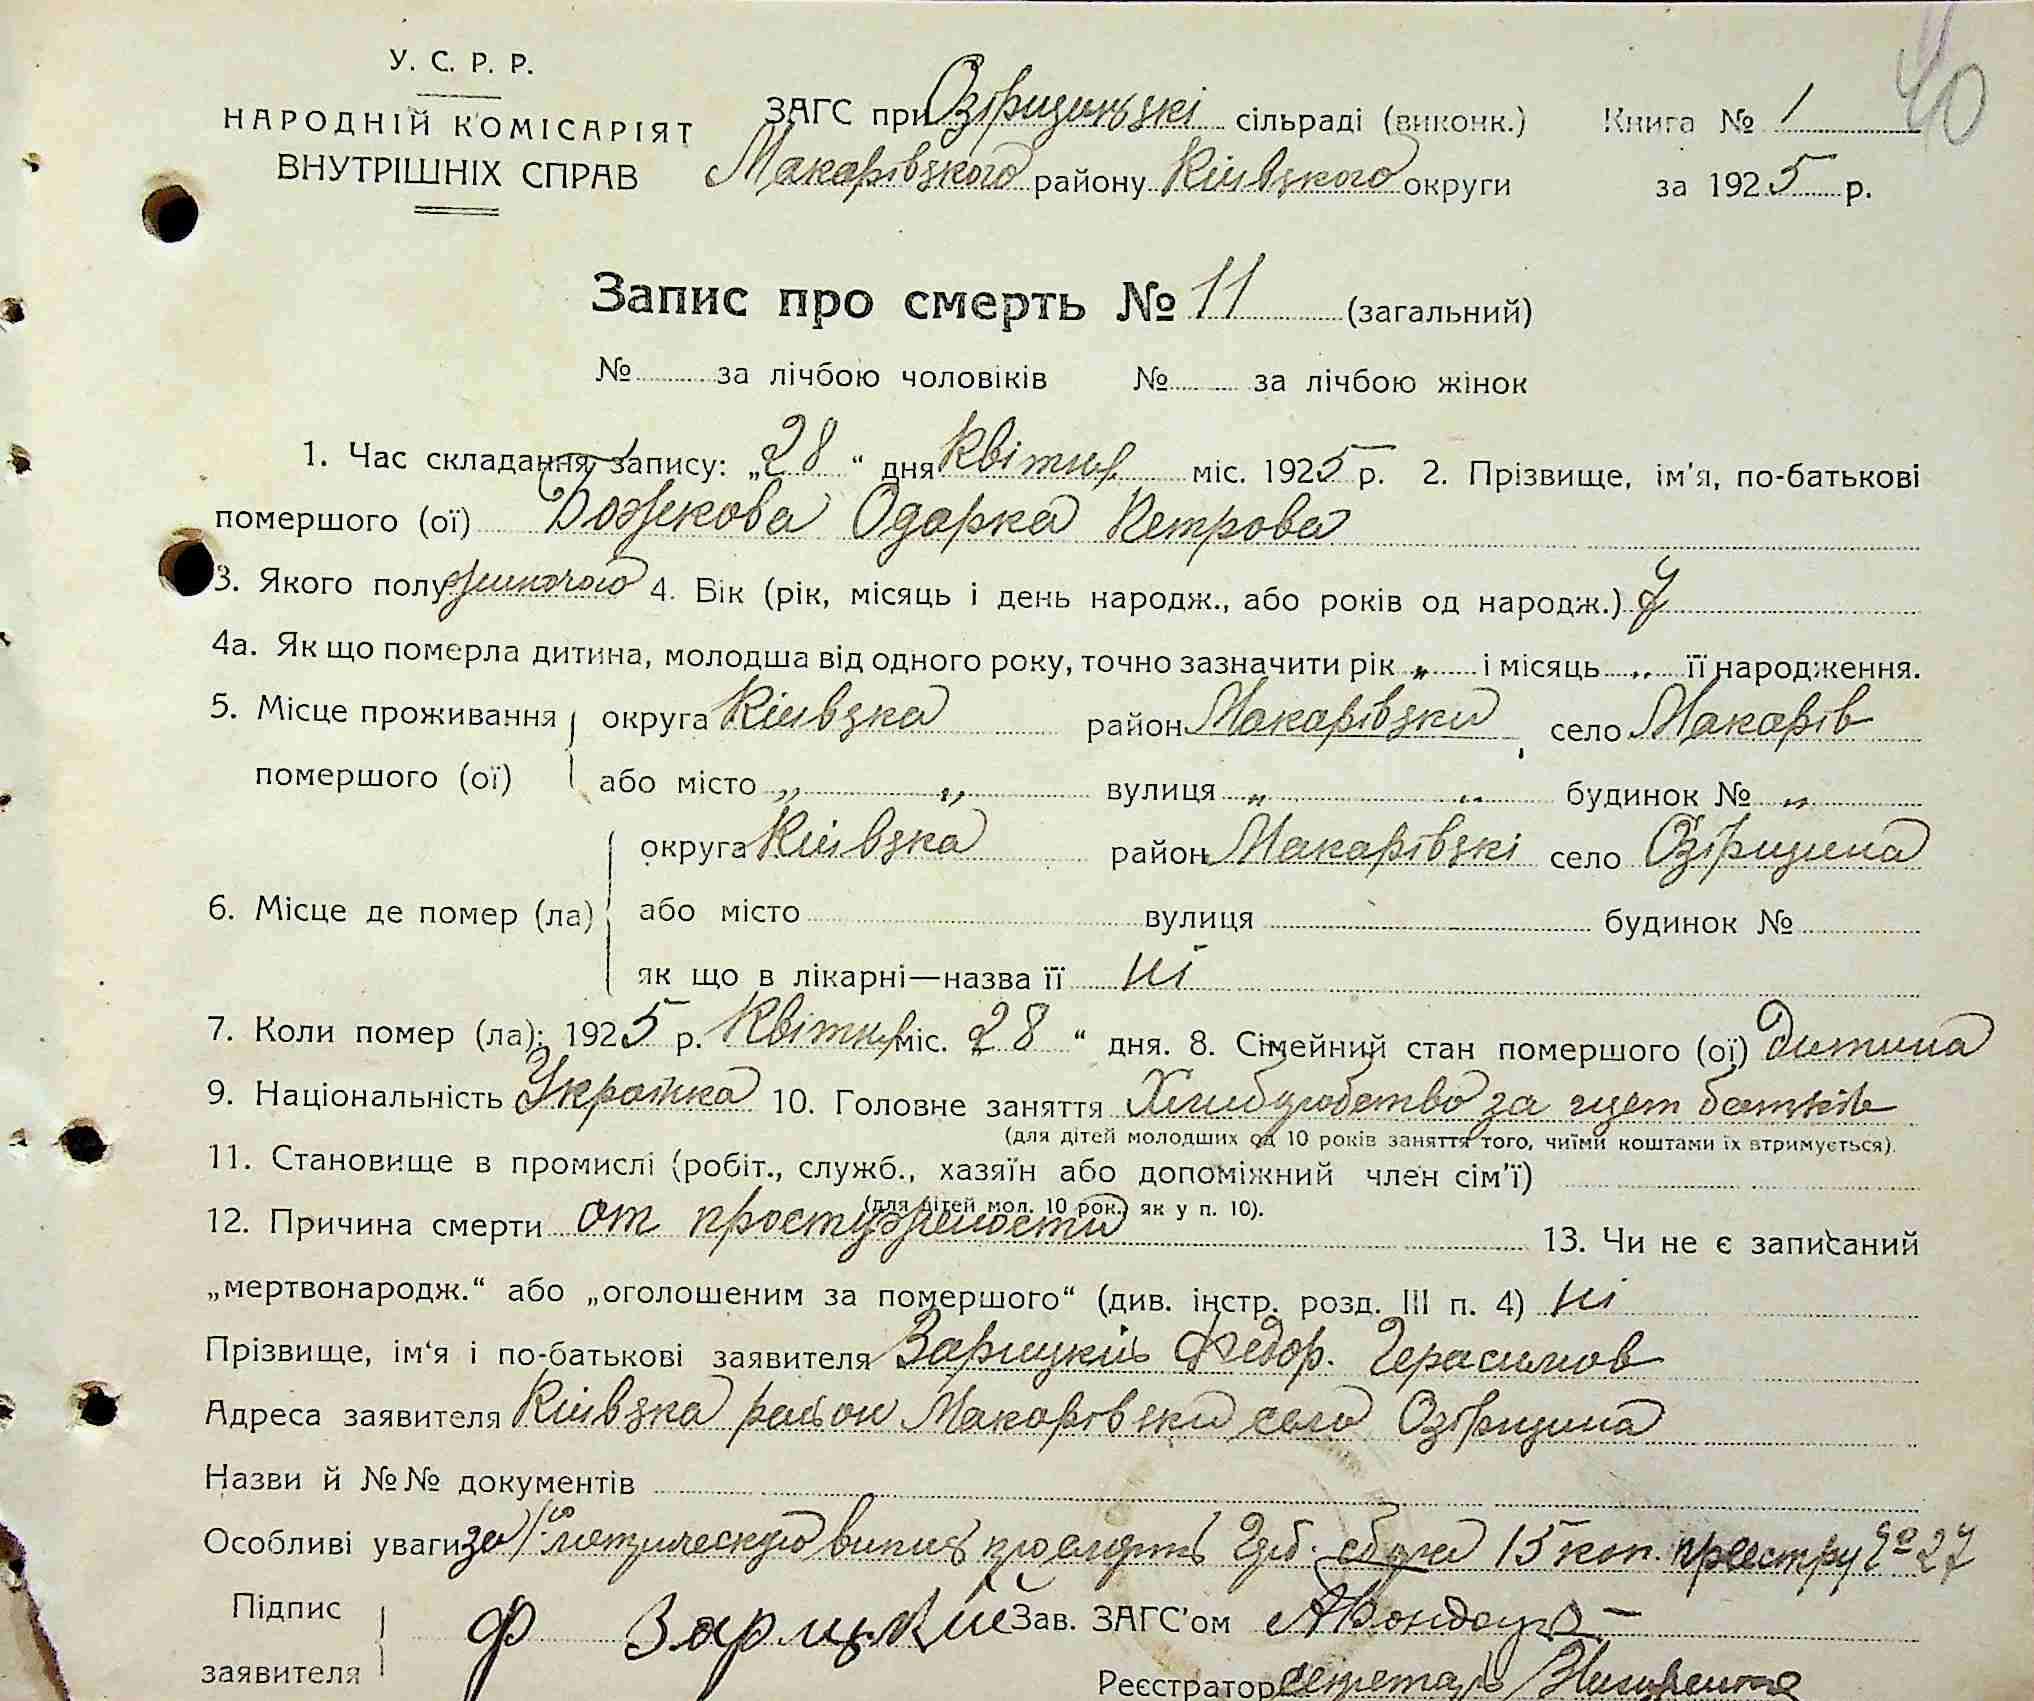 40
У. С. Р. Р.
НАРОДНІЙ КОМІСАРІЯТ
ВНУТРІШНІХ СПРАВ
ЗАГС при Озірщинські сільраді (виконк.) Книга № 1
Макарівзкого району Київзкого округи за 1925 р.
Запис про смерть № 11 (загальний)
№ за лічбою чоловіків № за лічбою жінок
1. Час складання запису: „28“ дня Квітня міс. 1925 р. 2. Прізвище, ім'я, по-батькові
помершого (ої) Божкова Одарка Петрова
3. Якого полу жиночого 4. Вік (рік, місяць і день народж., або років од народж.) 7
4а. Як що померла дитина, молодша від одного року, точно зазначити рік „ і місяць „ її народження.
5. Місце проживання округа Київзка район Макарівзки село Макарів
помершого (ої) або місто „ „ вулиця „ „ будинок № „
округа Київзка район Макарівзкі село Озірщина
6. Місце де помер (ла) або місто вулиця будинок №
як що в лікарні—назва її ні
7. Коли помер (ла): 1925 р. Квітня міс. 28 “ дня. 8. Сімейний стан помершого (ої) Дитина
9. Національність Українка 10. Головне заняття за щет батьків
(для дітей молодших од 10 років заняття того, чиїми коштами їх втримується).
11. Становище в промислі (робіт., служб., хазяїн або допоміжний член сім'ї)
(для дітей мол. 10 рок., як у п. 10).
12. Причина смерти от простужености 13. Чи не є записаний
„мертвонародж.“ або „оголошеним за помершого“ (див. інстр. розд. III п. 4) ні
Прізвище, ім'я і по-батькові заявителя Зарицкий Федор. Герасимов
Адреса заявителя Київзка район Макарівзки село Озірщина
Назви й №№ документів
Особливі уваги за метрическую 15 коп. № 27
Підпис
заявителя Ф Зарицкий Зав. ЗАГС'ом
Реєстратор секретарь